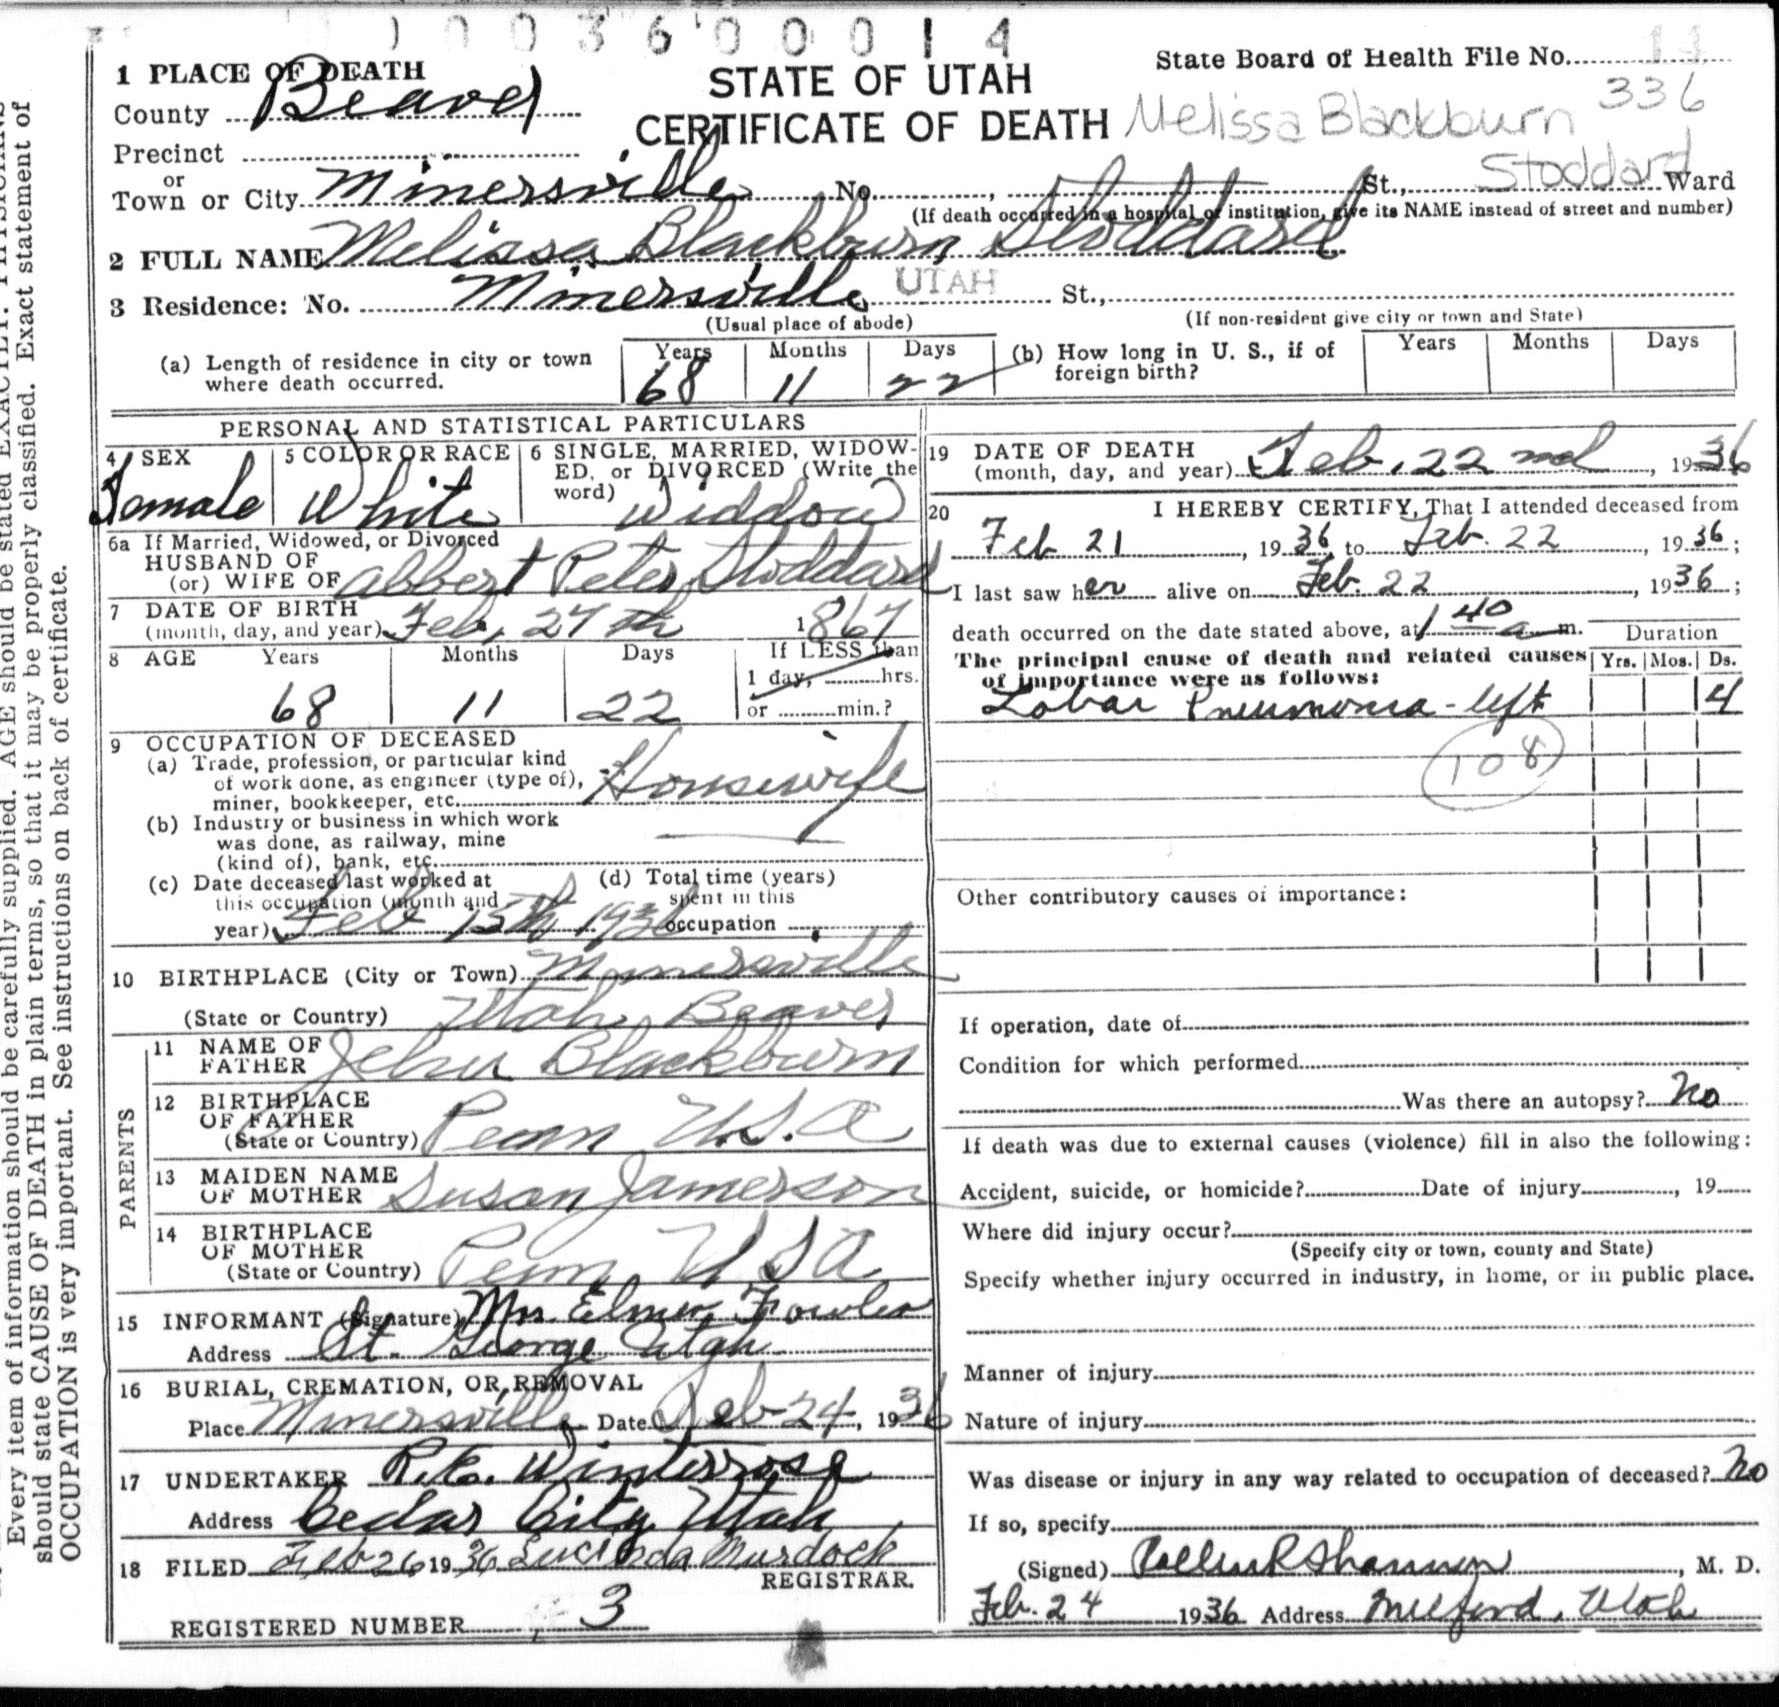 1 0 0 3 6 0 0 0 1 4
State Board of Health File No. 11
336
STATE OF UTAH
CERTIFICATE OF DEATH
Melissa Blackburn
Stoddard
1 PLACE OF DEATH
County Beaver
Precinct
or
Town or City Minersville No. , St., Ward
(If death occurred in a hospital or institution, give its NAME instead of street and number)
2 FULL NAME Melissa Blackburn Stoddard
3 Residence: No. Minersville UTAH St.,
(Usual place of abode) (If non-resident give city or town and State)
(a) Length of residence in city or town where death occurred. Years 68 Months 11 Days 22
(b) How long in U. S., if of foreign birth? Years Months Days
PERSONAL AND STATISTICAL PARTICULARS
4 SEX Female
5 COLOR OR RACE White
6 SINGLE, MARRIED, WIDOW-
ED, or DIVORCED (Write the
word) Widdow
6a If Married, Widowed, or Divorced
HUSBAND OF
(or) WIFE OF Albert Peter Stoddard
7 DATE OF BIRTH
(month, day, and year) Feb, 27 th 1867
8 AGE Years 68 Months 11 Days 22
If LESS than
1 day, hrs.
or min.?
9 OCCUPATION OF DECEASED
(a) Trade, profession, or particular kind
of work done, as engineer (type of),
miner, bookkeeper, etc. Housewife
(b) Industry or business in which work
was done, as railway, mine
(kind of), bank, etc.
(c) Date deceased last worked at
this occupation (month and
year) Feb 15th 1936
(d) Total time (years)
spent in this
occupation
10 BIRTHPLACE (City or Town) Minersville
(State or Country) Utah Beaver
PARENTS
11 NAME OF
FATHER Jehu Blackburn
12 BIRTHPLACE
OF FATHER
(State or Country) Penn U.S.A
13 MAIDEN NAME
OF MOTHER Susan Jamerson
14 BIRTHPLACE
OF MOTHER
(State or Country) Penn, U S A
15 INFORMANT (Signature) Mrs. Elmer Fowler
Address St. George Utah
16 BURIAL, CREMATION, OR REMOVAL
Place Minersville Date Feb 24, 1936
17 UNDERTAKER R.E. Winterrose
Address Cedar City Utah
18 FILED Feb 26 1936 Lucinda Murdock
REGISTRAR.
REGISTERED NUMBER 3
19 DATE OF DEATH
(month, day, and year) Feb. 22 nd, 1936
20 I HEREBY CERTIFY, That I attended deceased from
Feb 21, 1936, to Feb. 22, 1936;
I last saw her alive on Feb. 22, 1936;
death occurred on the date stated above, at 1 40 a m.
Duration
The principal cause of death and related causes Yrs. Mos. Ds.
of importance were as follows:
Lobar Pneumonia - left 4
108
Other contributory causes of importance:
If operation, date of
Condition for which performed
Was there an autopsy? No
If death was due to external causes (violence) fill in also the following:
Accident, suicide, or homicide? Date of injury , 19
Where did injury occur?
(Specify city or town, county and State)
Specify whether injury occurred in industry, in home, or in public place.
Manner of injury
Nature of injury
Was disease or injury in any way related to occupation of deceased? No
If so, specify
(Signed) Shannon, M. D.
Feb. 24 1936 Address Milford, Utah
Every item of information should be carefully supplied. AGE should be stated EXACTLY. PHYSICIANS
should state CAUSE OF DEATH in plain terms, so that it may be properly classified. Exact statement of
OCCUPATION is very important. See instructions on back of certificate.